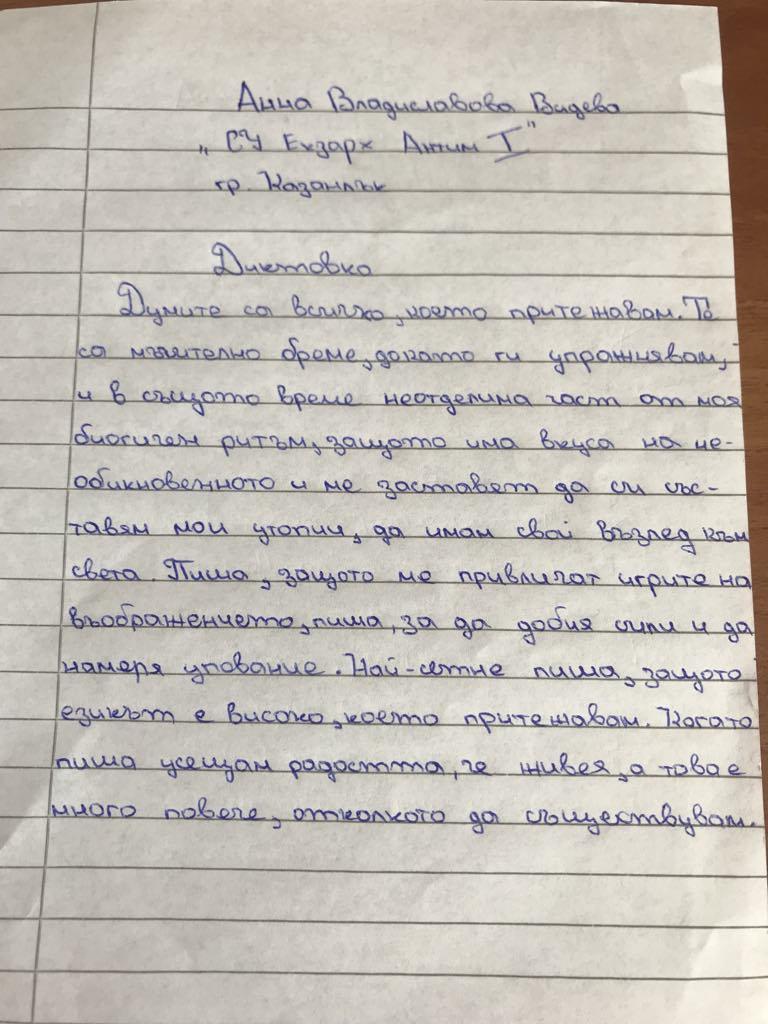 Анна Владиславова Видева
„СУ Екзарх Антим I"
гр. Казанлък
Диктовка
Думите са всичко, което притежавам. Те
са мъчително бреме, докато ги упражнявам,
и в същото време неотделима част от моя
биогичен ритъм, защото има вкуса на не-
обикновенното и ме заставят да си със-
тавям мои утопии, да имам свой възглед към
света. Пиша, защото ме привличат игрите на
въображението, пиша, за да добия сили и да
намеря упование. Най-сетне пиша, защото
езикът е високо, което притежавам. Когато
пиша усещам радостта, че живея, а това е
много повече, отколкото да съществувам.